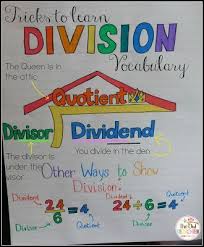 Tricks to learn
DIVISION
Vocabulary
The Queen is in
the attic
Quotient
Divisor Dividend
The divisor is
under the
visor
You divide in the den
Other Ways to Show
Division:
Dividend Quotient Dividend Quotient
24/6 = 4 24 ÷ 6 = 4
Divisor Divisor